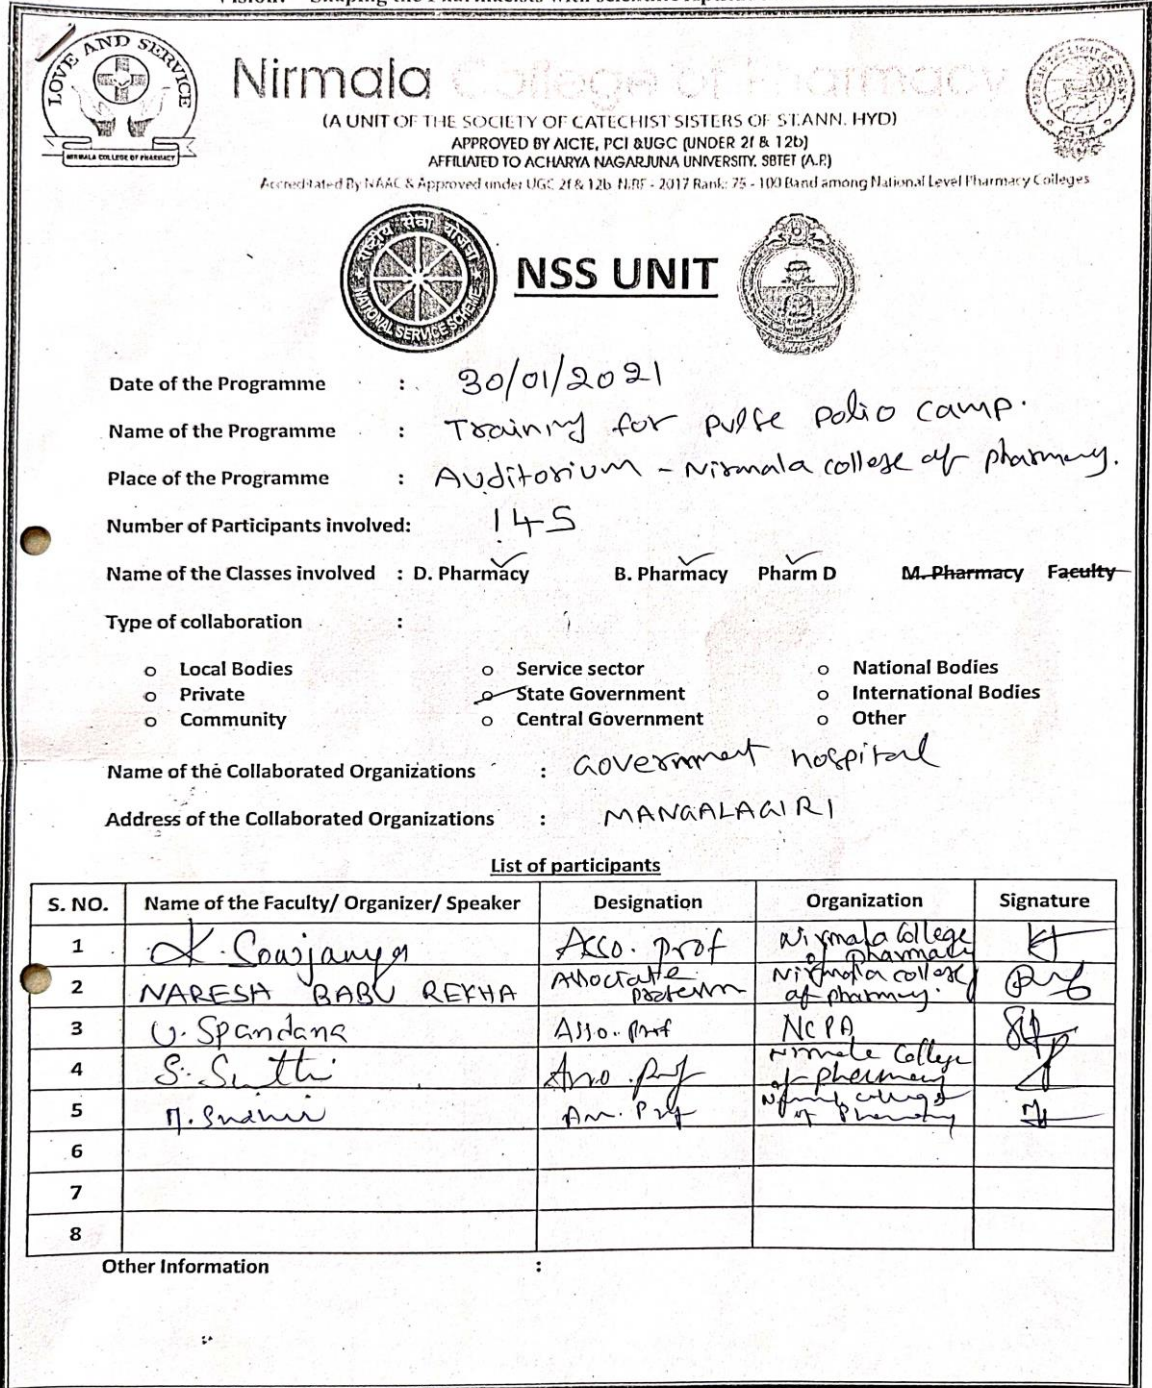 LOVE AND SERVICE
NIRMALA COLLEGE OF PHARMACY
Nirmala College of Pharmacy
(A UNIT OF THE SOCIETY OF CATECHIST SISTERS OF ST.ANN. HYD)
APPROVED BY AICTE, PCI &UGC (UNDER 2f & 12b)
AFFILIATED TO ACHARYA NAGARJUNA UNIVERSITY. SBTET (A.P.)
Accreditated By NAAC & Approved under UGC 2f & 12b NIRF - 2017 Rank: 75 - 100 Band among National Level Pharmacy Colleges
राष्ट्रीय सेवा योजना
NATIONAL SERVICE SCHEME
NSS UNIT
Date of the Programme : 30/01/2021
Name of the Programme : Training for pulse polio camp.
Place of the Programme : Auditorium - Nirmala college of pharmacy.
Number of Participants involved: 145
Name of the Classes involved : D. Pharmacy B. Pharmacy Pharm D M. Pharmacy Faculty
Type of collaboration :
o Local Bodies o Service sector o National Bodies
o Private o State Government o International Bodies
o Community o Central Government o Other
Name of the Collaborated Organizations : Government hospital
Address of the Collaborated Organizations : MANGALAGIRI
List of participants
S. NO. Name of the Faculty/ Organizer/ Speaker Designation Organization Signature
1 K. Sowjanya Asso. prof Nirmala College of pharmacy
2 NARESH BABU REKHA Associate professor Nirmala college of pharmacy.
3 U. Spandana Asso. prof NCPA
4 S. Asso. prof Nirmala College of pharmacy
5 of Pharmacy
6
7
8
Other Information :